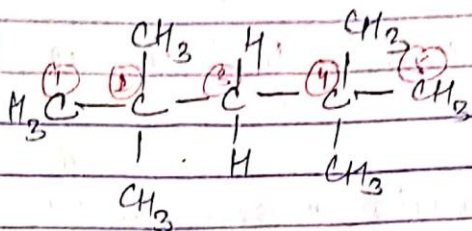 CH3 H CH3
1 2 3 4 5
H3C — C — C — C — CH3
CH3 H CH3